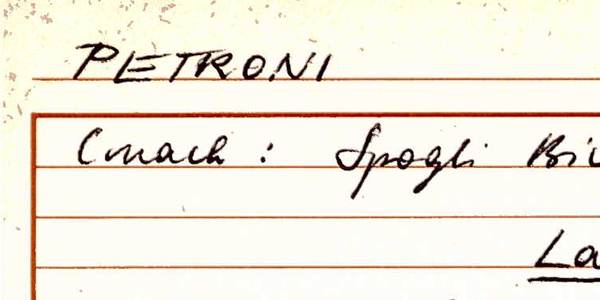 PETRONI
Cmach : Spogli Bi
La